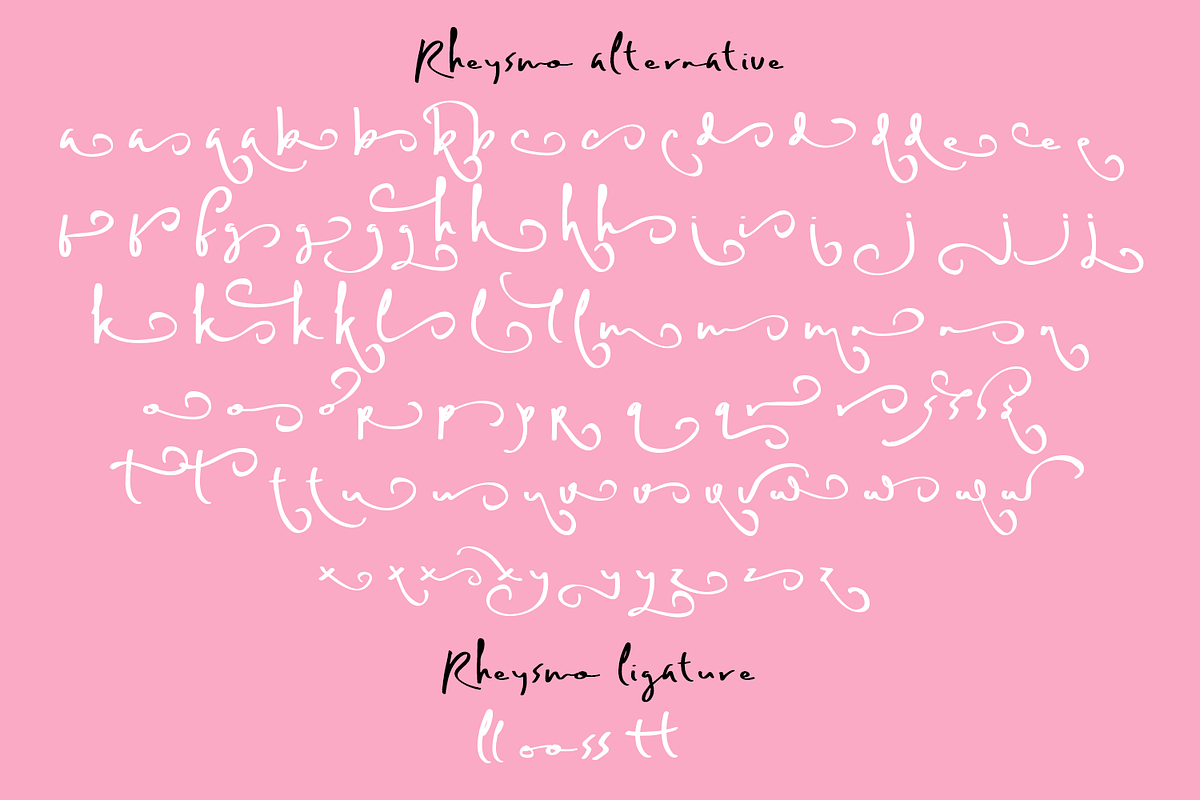 Rheysmo alternative
a a a a b b b b c c c d d d d e e e e
f f f g g g g h h h h i i i i j j j j
k k k k l l l l m m m n n n
o o o p p p p q q r r s s s s
t t t t u u u v v v v w w w w
x x x x y y y z z z
Rheysmo ligature
ll oo ss tt